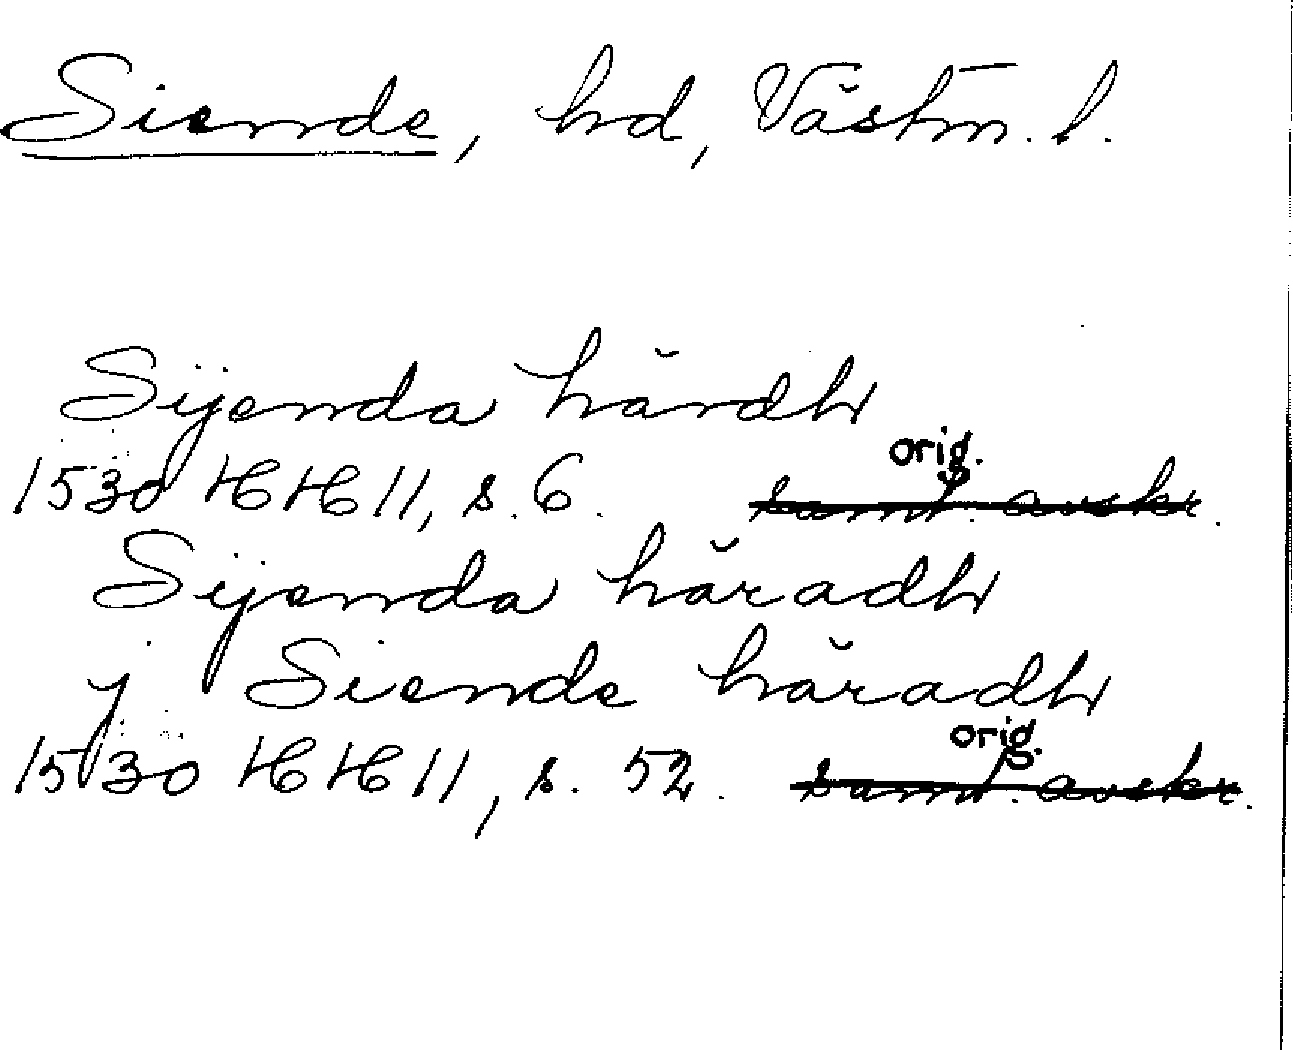 Siende, hd, Västm. l.
Sijenda härdh
orig.
1530 HH 11, s. 6. samt. avskr.
Sijenda häradh
j Siende häradh
orig.
1530 HH 11, s. 52. samt. avskr.